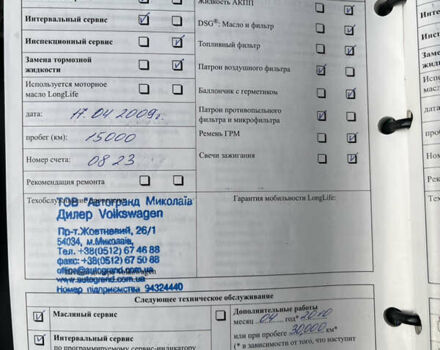 жидкость АКПП
Интервальный сервис
DSG®: Масло и фильтр
Инспекционный сервис
Топливный фильтр
Замена тормозной
жидкости
Патрон воздушного фильтра
Используется моторное
масло LongLife
Баллончик с герметиком
дата: 17.04 2009г.
Патрон противопыльного
фильтра и микрофильтра
пробег (км): 15000
Ремень ГРМ
Номер счета: 0823
Свечи зажигания
Рекомендации ремонта
Гарантия мобильности LongLife:
ТОВ Автогранд Миколаїв
Дилер Volkswagen
Пр-т.Жовтневий, 26/1
54034, м.Миколаїв,
Тел.+38(0512) 67 46 88
факс:+38(0512) 67 50 88
office@autogrand.com.ua
www.autogrand.com.ua
Номер підприємства 94324440
Следующее техническое обслуживание
Масляный сервис
Дополнительные работы
месяц 04 год* 2010
или при пробеге 30000 км*
Интервальный сервис
(* в зависимости от того, что наступит
по программируемому сервис-индикатору